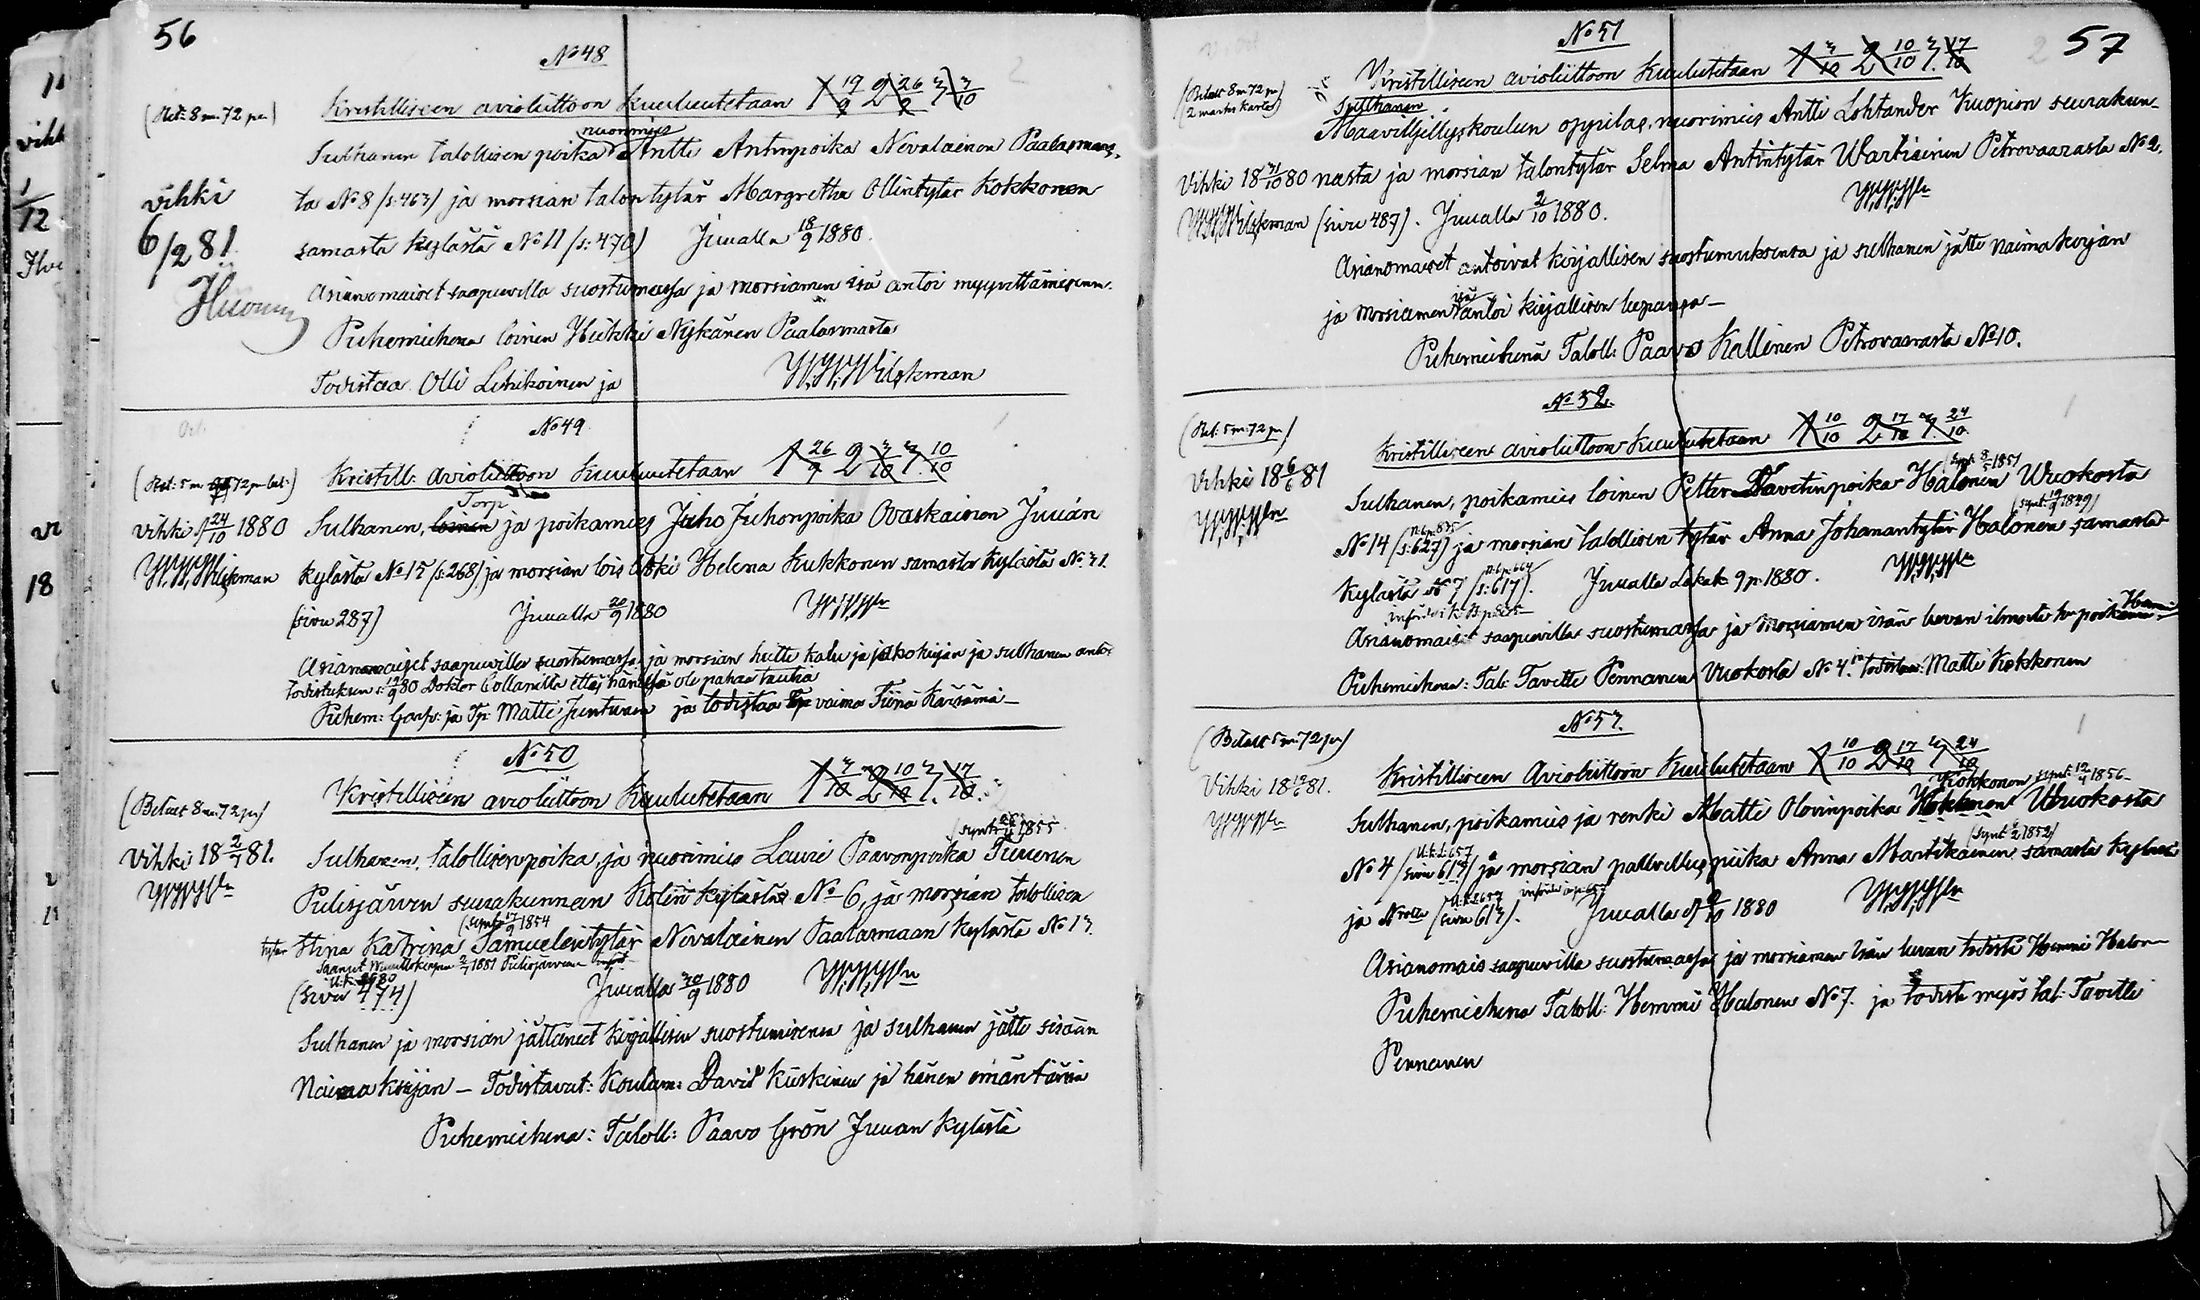 56
No 48
(Bet: 8 m. 72 pn)
Kristilliseen avioliittoon Kuulutetaan 1 19/9 2 26/9 3 3/10
nuorimies
Sulhanen talollisen poika Antti Antinpoika Nevalainen Paalasmaas-
vihki
ta No 8 (s: 463) ja morsian talontytär Margretha Ollintytär Kokkonen
6/2 81.
samasta kylästä No 11 (s: 470) Juualla 18/9 1880.
Asianomaiset saapuvilla suostumassa ja morsiamen isä antoi myyvittämisensä.
Puhemiehenä loinen Heikki Nykänen Paalasmaasta
Todistaa Olli Lehikoinen ja W.W.Wilskman
No 49
(Bet: 5 m. 72 pn bet:)
Kristill: avioliittoon Kuulutetaan 1 26/9 2 3/10 3. 10/10
Torp
Vihki 24/10 1880
Sulhanen, loinen ja poikamies Juho Juhonpoika Ovaskainen Juuan
W.W.Wilskman
kylästä No 15 (s: 268) ja morsian lois leski Helena Kukkonen samasta kylästä No 31.
(sivu 287) Juualla 20/9 1880 W.W.Wn
Asianomaiset saapuvilla suostumassa ja morsian hutte kalu ja jakokirjan ja sulhanen antoi
todistuksen s: 19/9 80 Doktor Collanilta ettei hänessä ole pahaa tautia
Puhem: ja Tp: Matti Juntunen ja todistaa Tp vaimo Tiina Kärnä
No 50
(Betalt 8 m. 72 pn)
Kristilliseen avioliittoon Kuulutetaan 1 3/10 2 10/10 3. 17/10.
(Synt: 26/11 1855
Vihki 18 2/7 81.
Sulhanen, talollisenpoika, ja nuorimies Lauri Paavonpoika Turunen
W.W.Wn
Pielisjärven seurakunnan Kolin kylästä No 6, ja morsian talollisen
(Synt: 17/9 1854
tytär Stina Katrina Samuelintytär Nevalainen Paalasmaan kylästä No 13.
(sivu 474) Juualla 30/9 1880 W.W.Wn
Sulhanen ja morsian jättäneet kirjallisen suostumisensa ja sulhanen jätti sisään
Naimakirjan – Todistavat: Koulum: David Kiiskinen ja hänen emäntänsä
Puhemiehenä: Taloll: Paavo Grön Juuan kylästä
57
No 51
(Betalt 8 m 72 pn
Kristilliseen avioliittoon Kuulutetaan 1 3/10 2 10/10 3. 17/10
Sulhanen
Maanviljellyskoulun oppilas, nuorimies Antti Lohtander Kuopion seurakun-
Vihki 18 31/10 80
nasta ja morsian talontytär Selma Antintytär Wartiainen Petrovaarasta No 2.
W.W.Wilskman
(sivu 487). Juualla 2/10 1880. W.W.Wn
Asianomaiset antoivat kirjallisen suostumuksensa ja sulhanen jätti naimakirjan
isä
ja morsiamen antoi kirjallisen lupansa –
Puhemiehenä Taloll: Paavo Kallinen Petrovaarasta No 10.
No 52.
(Bet: 5 m: 72 pn)
Kristilliseen avioliittoon Kuulutetaan 1 10/10 2 17/10 3. 24/10.
(Synt: 8/5 1851
Vihki 18 6/6 81
Sulhanen, poikamies loinen Petter Tavetinpoika Halonen Wuokosta
W.W.Wn
(Synt: 19/9 1849)
No 14 (s: 627) ja morsian talollisen tytär Anna Johanantytär Halonen samasta
kylästä No 7 (s: 617). Juualla Lokak 9 p. 1880. W.W.Wn
Asianomaiset saapuvilla suostumassa ja morsiamen isän luvan ilmoitti
Puhemiehenä: Tal: Tavetti Pennanen Vuokosta No 4. todistaa: Matti Kokkonen
No 53.
(Betalt 5 m: 72 pn)
Kristilliseen Avioliittoon Kuulutetaan 1 10/10 2 17/10 3 24/10
Kokkonen synt: 19/4 1856
Vihki 18 19/6 81.
Sulhanen, poikamies ja renki Matti Olovinpoika Kokkonen Wuokosta
W.W.Wn
(Synt: 6/2 1852)
No 4 (sivu 613) ja morsian palvellus piika Anna Martikainen samasta kylästä
ja Nrolta (sivu 613). Juualla 9/10 1880 W.W.Wn
Asianomais saapuvilla suostumassa ja morsiamen isän luvan todisti Hemmi Halonen
Puhemiehenä Taloll: Hemmi Halonen No 7. ja todisti myös tal: Tavetti
Pennanen